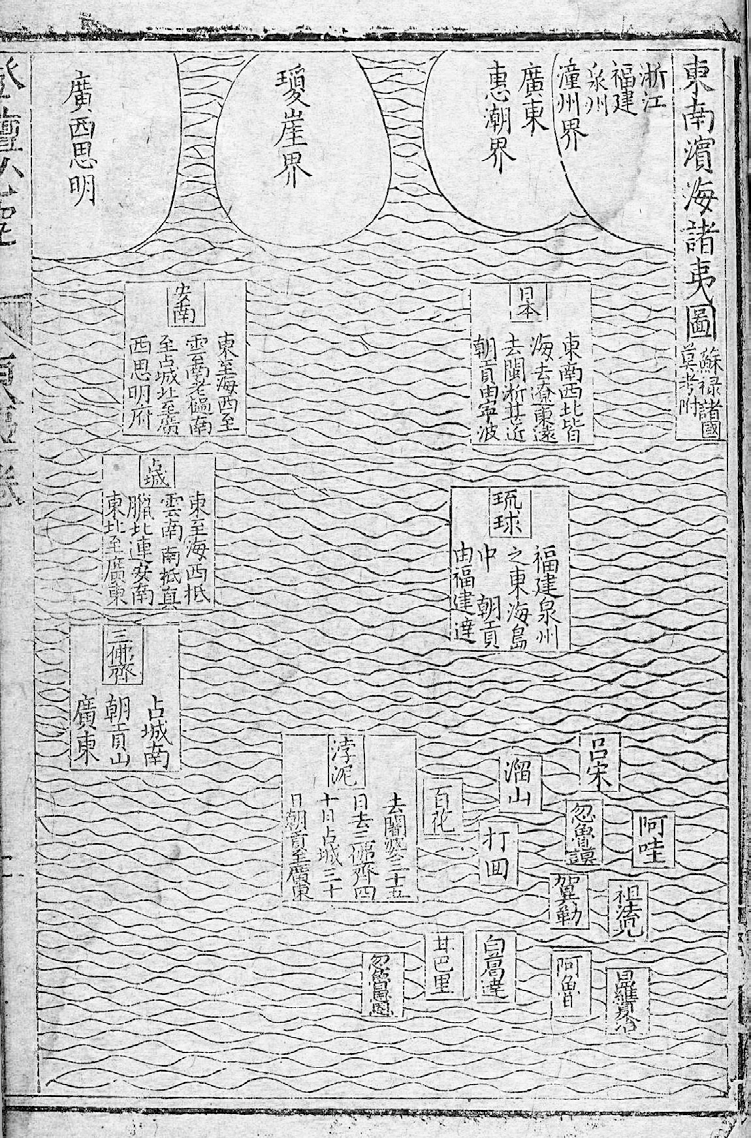 東南濵海諸夷圖
蘇禄諸國
莫考附
浙江
福建
泉州
潼州界
廣東
惠潮界
瓊崖界
廣西思明
日本
東南西北皆
海去遼東遠
去閩浙甚近
朝貢由寧波
安南
東至海西至
雲南老撾南
至占城北至廣
西思明府
琉球
福建泉州
之東海島
中朝貢
由福建達
占城
東至海西抵
雲南南抵真
臘北連安南
東北至廣東
三佛齊
占城南
朝貢山
廣東
浡泥
去闍婆三十五
日去三佛齊四
十日占城三十
日朝貢至廣東
百花
溜山
打回
呂宋
忽魯謨
阿哇
祖法兒
阿魯
甘巴里
白葛達